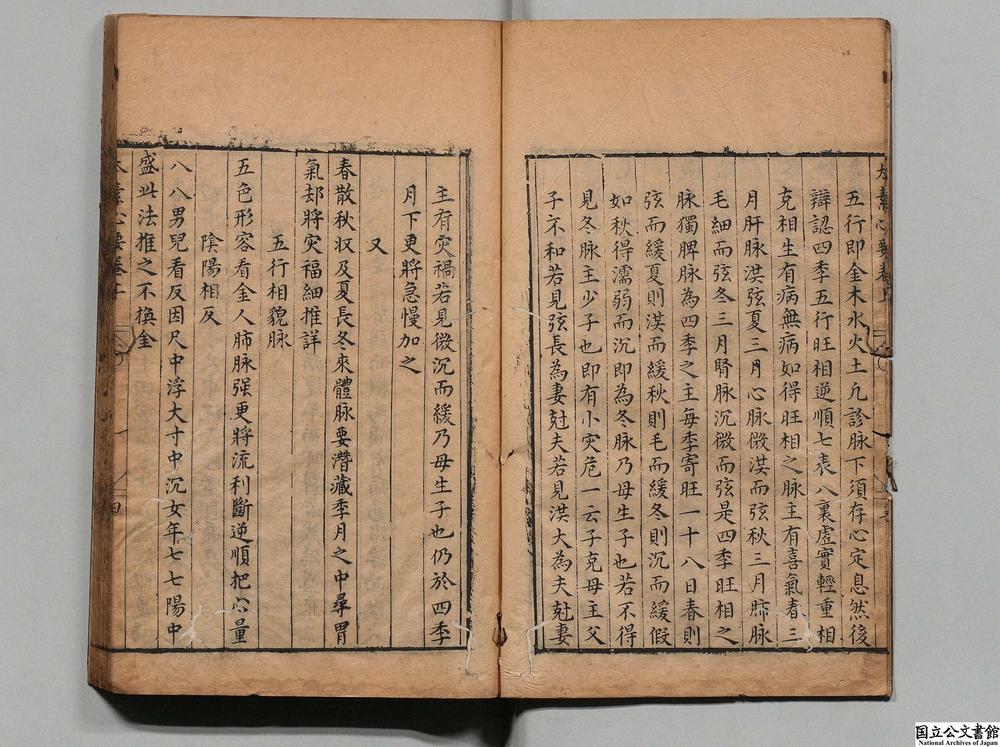 五行即金木水火土凡診脉下須存心定息然後
辯認四季五行旺相逆順七表八裏虛實輕重相
克相生有病無病如得旺相之脉主有喜氣春三
月肝脉洪弦夏三月心脉微洪而弦秋三月肺脉
毛細而弦冬三月腎脉沉微而弦是四季旺相之
脉獨脾脉為四季之主每季寄旺一十八日春則
弦而緩夏則洪而緩秋則毛而緩冬則沉而緩假
如秋得濡弱而沉即為冬脉乃母生子也若不得
見冬脉主少子也即有小灾危一云子克母主父
子不和若見弦長為妻尅夫若見洪大為夫尅妻
太素心要卷上
主有灾禍若見微沉而緩乃母生子也仍於四季
月下更將急慢加之
又
春散秋収及夏長冬來體脉要潛藏季月之中尋胃
氣却將灾福細推詳
五行相貌脉
五色形容看金人肺脉强更將流利斷逆順把心量
陰陽相反
八八男兒看反因尺中浮大寸中沉女年七七陽中
盛此法推之不換金
太素心要卷上
四
国立公文書館
National Archives of Japan